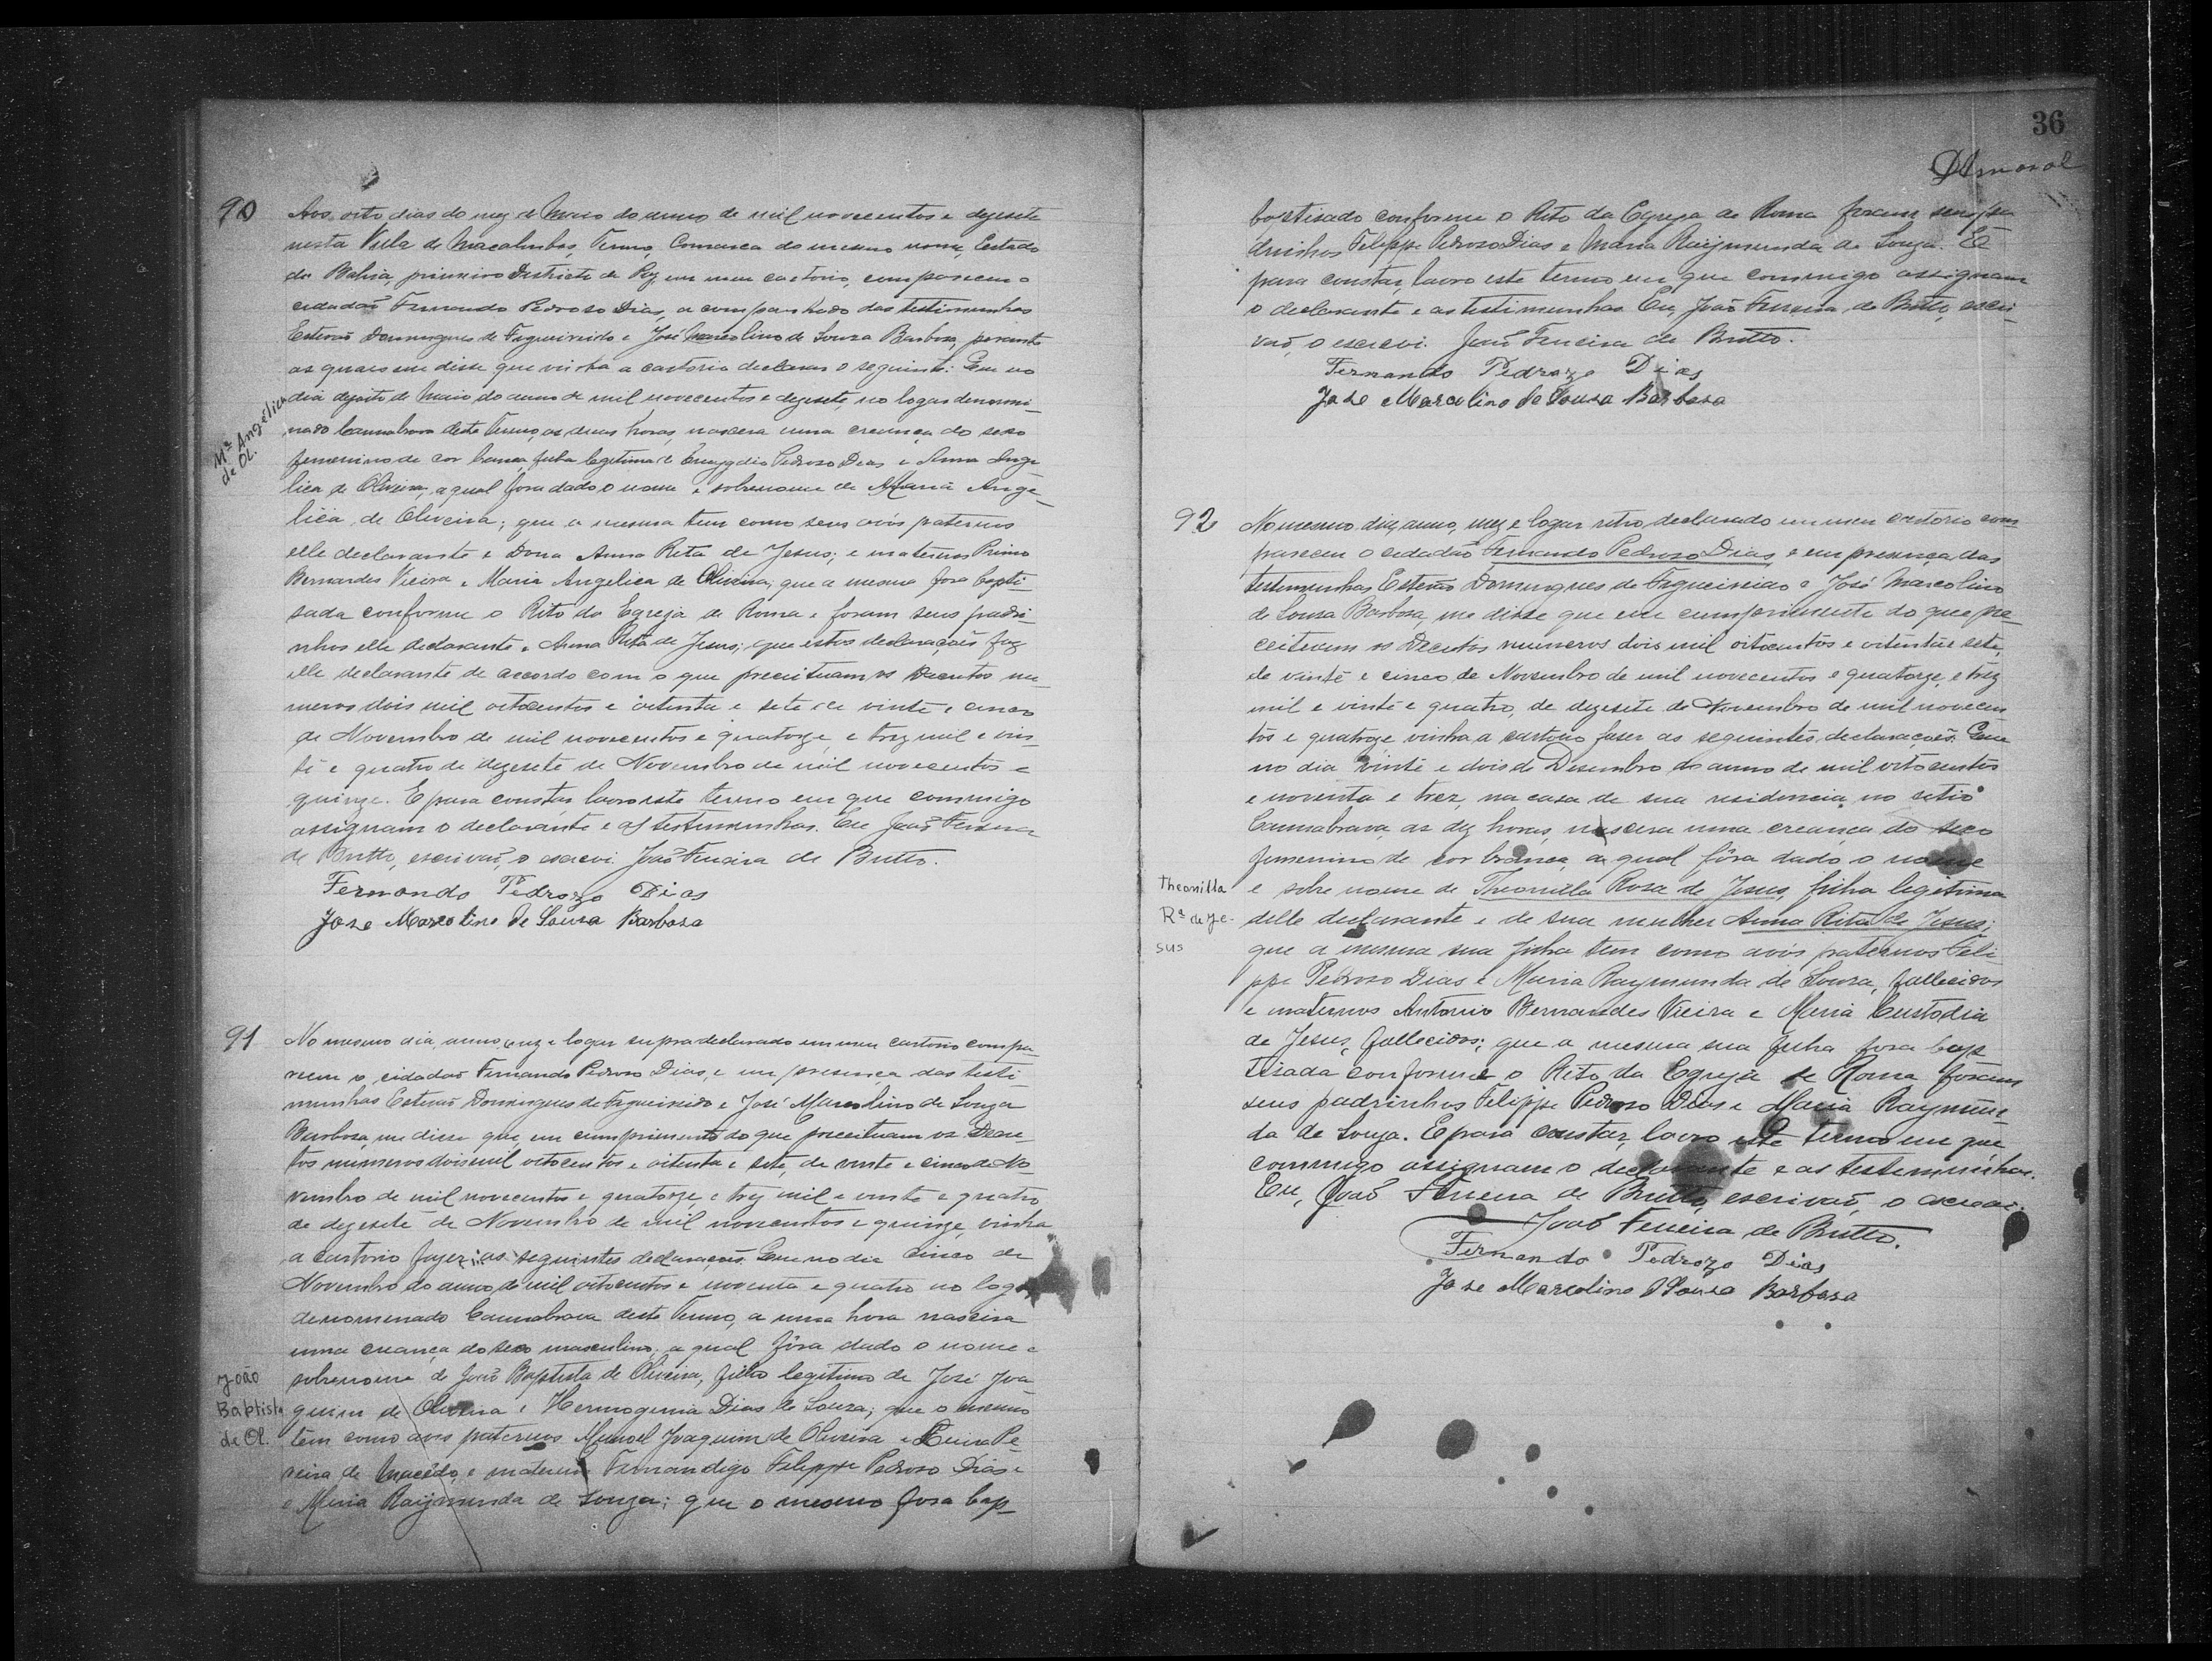 90
Aos oito dias do mez de Maio do anno de mil novecentos e dezesete
nesta Villa de Macahubas, Termo, Comarca do mesmo nome, Estado
da Bahia, primeiro Districto de Paz, em meu cartorio, compareceu o
cidadaõ Fernando Pedroso Dias, acompanhado das testimunhas
Estevaõ Domingues de Figueiredo e José Marcolino de Souza Barbosa, perante
as quaes me disse que vinha a cartorio declarar o seguinte: Que no
dia de Maio do anno de mil novecentos e dezesete, no logar denomi-
nado Cannabrava deste Termo, as duas horas, nascera uma creança do sexo
femenino de cor branca, filha legitima de Emygdio Pedroso Dias e Anna Ange
lica de Oliveira, a qual fora dado o nome e sobrenome de Maria Ange-
lica de Oliveira; que a mesma tem como seus avós paternos
elle declarante e Dona Anna Rita de Jesus; e maternos Primo
Bernardes Vieira e Maria Angelica de Oliveira; que a mesma fora bapti-
sada conforme o Rito da Egreja de Roma e foram seus padri-
nhos elle declarante e Anna Rita de Jesus; que estas declaraçoẽs faz
elle declarante de accordo com o que preceituam os Decretos nu-
meros dois mil oitocentos e oitenta e sete de vinte e cinco
de Novembro de mil novecentos e quatorze e trez mil e vin-
te e quatro de dezesete de Novembro de mil novecentos e
quinze. E para constar, lavro este termo em que commigo
assignam o declarante e as testemunhas. Eu João Ferreira
de Britto, escrivaõ, o escrevi. João Ferreira de Britto.
Fernando Pedrozo Dias
Jose Marcolino de Sousa Barbosa
Mª Angélica
de Ol.
91
No mesmo dia, anno, mez e logar supra declarado em meu cartorio compa-
receu o cidadaõ Fernando Pedroso Dias, e em presença das testi-
munhas Estevaõ Domingues de Figueiredo e José Marcolino de Souza
Barbosa, me disse que, em cumprimento do que preceituam os Decre-
tos numeros dois mil oitocentos e oitenta e sete, de vinte e cinco de No
vembro de mil novecentos e quatorze, e trez mil e vinte e quatro
de dezesete de Novembro de mil novecentos e quinze, vinha
a cartorio fazer as seguintes declaraçoẽs. Que no dia cinco de
Novembro do anno de mil oitocentos e noventa e quatro no logar
denomenado Cannabrava deste Termo, a uma hora nascera
uma creança do sexo masculino, a qual fôra dado o nome e
sobrenome de João Baptista de Oliveira, filho legitimo de José Joa-
quim de Oliveira e Hermogenia Dias de Souza; que o mesmo
tem como avos paternos Manoel Joaquim de Oliveira e Pe-
reira de Macêdo, e maternos Felippe Pedroso Dias e
e Maria Raymunda de Souza; que o mesmo fora bap-
João
Baptista
de Ol.
36
DAmaral
baptisado conforme o Rito da Egreja de Roma foram seus pa
drinhos Felippe Pedroso Dias e Maria Raymunda de Souza. E
para constar, lavro este termo em que commigo assignam
o declarante e as testimunhas. Eu, João Ferreira de Britto, escri-
vaõ, o escrevi. João Ferreira de Britto.
Fernando Pedrozo Dias
Jose Marcolino de Sousa Barbosa
92
No mesmo dia, anno, mez e logar retro declarado em meu cartorio com-
pareceu o cidadaõ Fernando Pedroso Dias, e em presença das
testimunhas Estevaõ Domingues de Figueiredo e José Marcolino
de Souza Barbosa, me disse que em cumprimento do que pre-
ceituam os Decretos numeros dois mil oitocentos e oitenta e sete,
de vinte e cinco de Novembro de mil novecentos e quatorze, e trez
mil e vinte e quatro, de dezesete de Novembro de mil novecen
tos e quatroze vinha a cartorio faser as seguintes declaraçoẽs. Que
no dia vinte e dois de Desembro do anno de mil oitocentos
e noventa e trez, na casa de sua residencia no sitio
Cannabrava, as dez horas, nascera uma creança do sexo
femenino de cor branca, a qual fôra dado o nome
e sobre nome de Theonilla Rosa de Jesus, filha legitima
delle declarante e de sua mulher Anna Rita de Jesus;
que a mesma sua filha tem como avós paternos Feli-
ppe Pedroso Dias e Maria Raymunda de Souza, fallecidos
e maternos Antonio Bernardes Vieira e Maria Custodia
de Jesus, fallecidos; que a mesma sua filha fora bap
tisada conforme o Rito da Egreja de Roma foram
seus padrinhos Felippe Pedroso Dias e Maria Raymun-
da de Souza. E para constar, lavro este termo em que
commigo assignam o declarante e as testemunhas.
Eu, João Ferreira de Britto, escrivaõ, o escrevi.
João Ferreira de Britto.
Fernando Pedrozo Dias
Jose Marcolino de Sousa Barbosa
Theonilla
Rª de Je-
sus